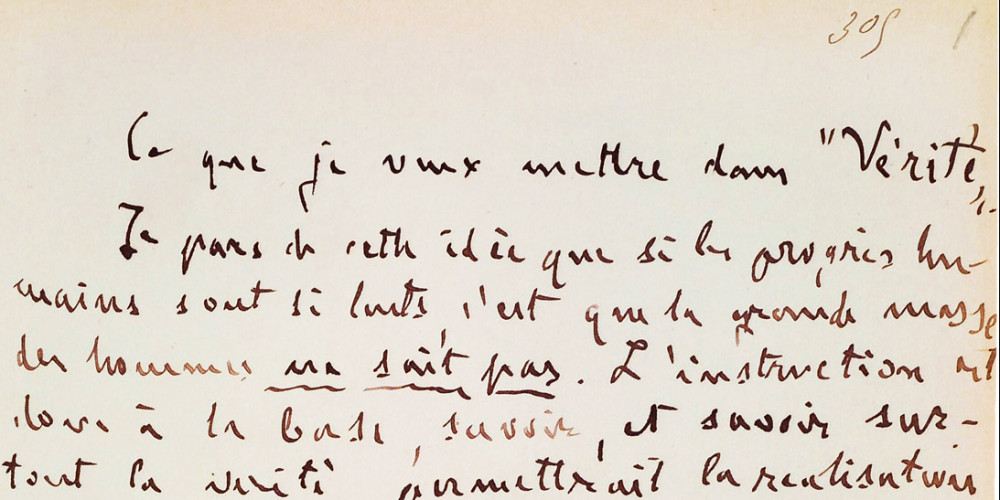 305 1
Ce que je veux mettre dans "Vérité".
Je pars de cette idée que si les progrès hu-
mains sont si lents, c'est que la grande masse
des hommes ne sait pas. L'instruction est
donc à la base, savoir, et savoir sur-
tout la vérité permettrait la réalisation